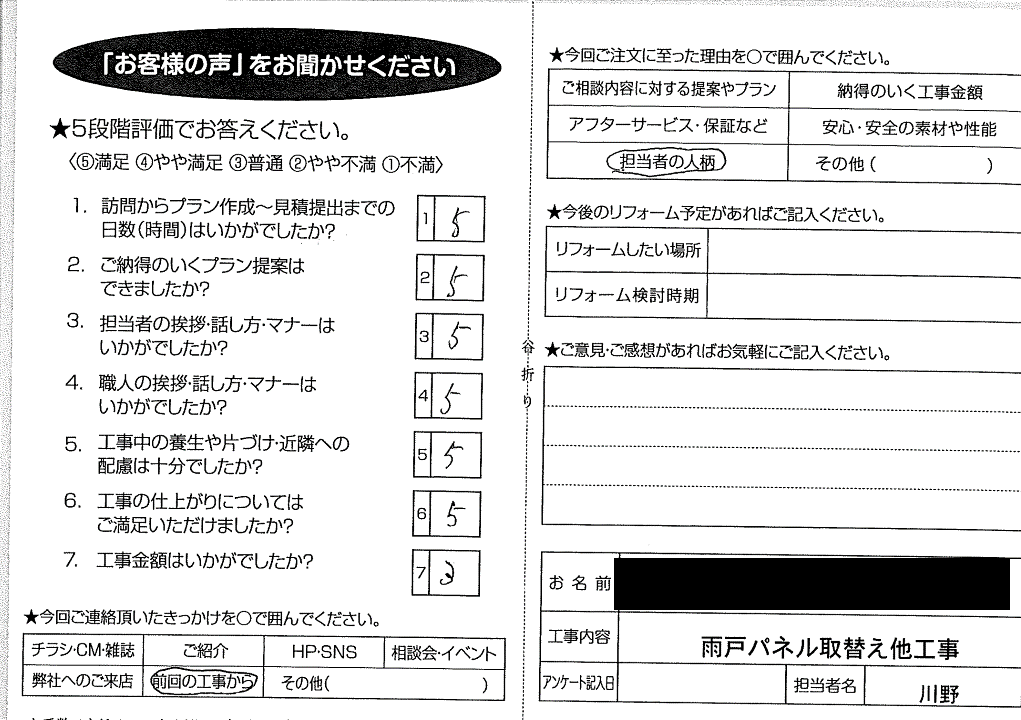 「お客様の声」をお聞かせください
★5段階評価でお答えください。
〈⑤満足 ④やや満足 ③普通 ②やや不満 ①不満〉
1. 訪問からプラン作成〜見積提出までの
日数(時間)はいかがでしたか?
1 5
2. ご納得のいくプラン提案は
できましたか?
2 5
3. 担当者の挨拶・話し方・マナーは
いかがでしたか?
3 5
4. 職人の挨拶・話し方・マナーは
いかがでしたか?
4 5
5. 工事中の養生や片づけ・近隣への
配慮は十分でしたか?
5 5
6. 工事の仕上がりについては
ご満足いただけましたか?
6 5
7. 工事金額はいかがでしたか?
7 3
★今回ご連絡頂いたきっかけを○で囲んでください。
チラシ・CM・雑誌 ご紹介 HP・SNS 相談会・イベント
弊社へのご来店 前回の工事から その他( )
谷折り
★今回ご注文に至った理由を○で囲んでください。
ご相談内容に対する提案やプラン 納得のいく工事金額
アフターサービス・保証など 安心・安全の素材や性能
担当者の人柄 その他( )
★今後のリフォーム予定があればご記入ください。
リフォームしたい場所
リフォーム検討時期
★ご意見・ご感想があればお気軽にご記入ください。
お名前
工事内容 雨戸パネル取替え他工事
アンケート記入日 担当者名 川野